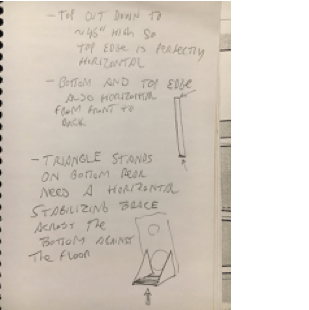 - TOP CUT DOWN TO
~46" HIGH SO
TOP EDGE IS PERFECTLY
HORIZONTAL
- BOTTOM AND TOP EDGE
ALSO HORIZONTAL
FROM FRONT TO
BACK
- TRIANGLE STANDS
ON BOTTOM REAR
NEED A HORIZONTAL
STABILIZING BRACE
ACROSS THE
BOTTOM AGAINST
THE FLOOR